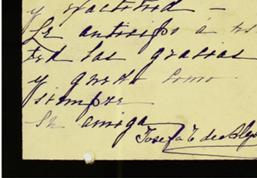 y exactitud –
Le anticipo a us
ted las gracias
y quedo como
siempre
Su amiga
Josefa T de